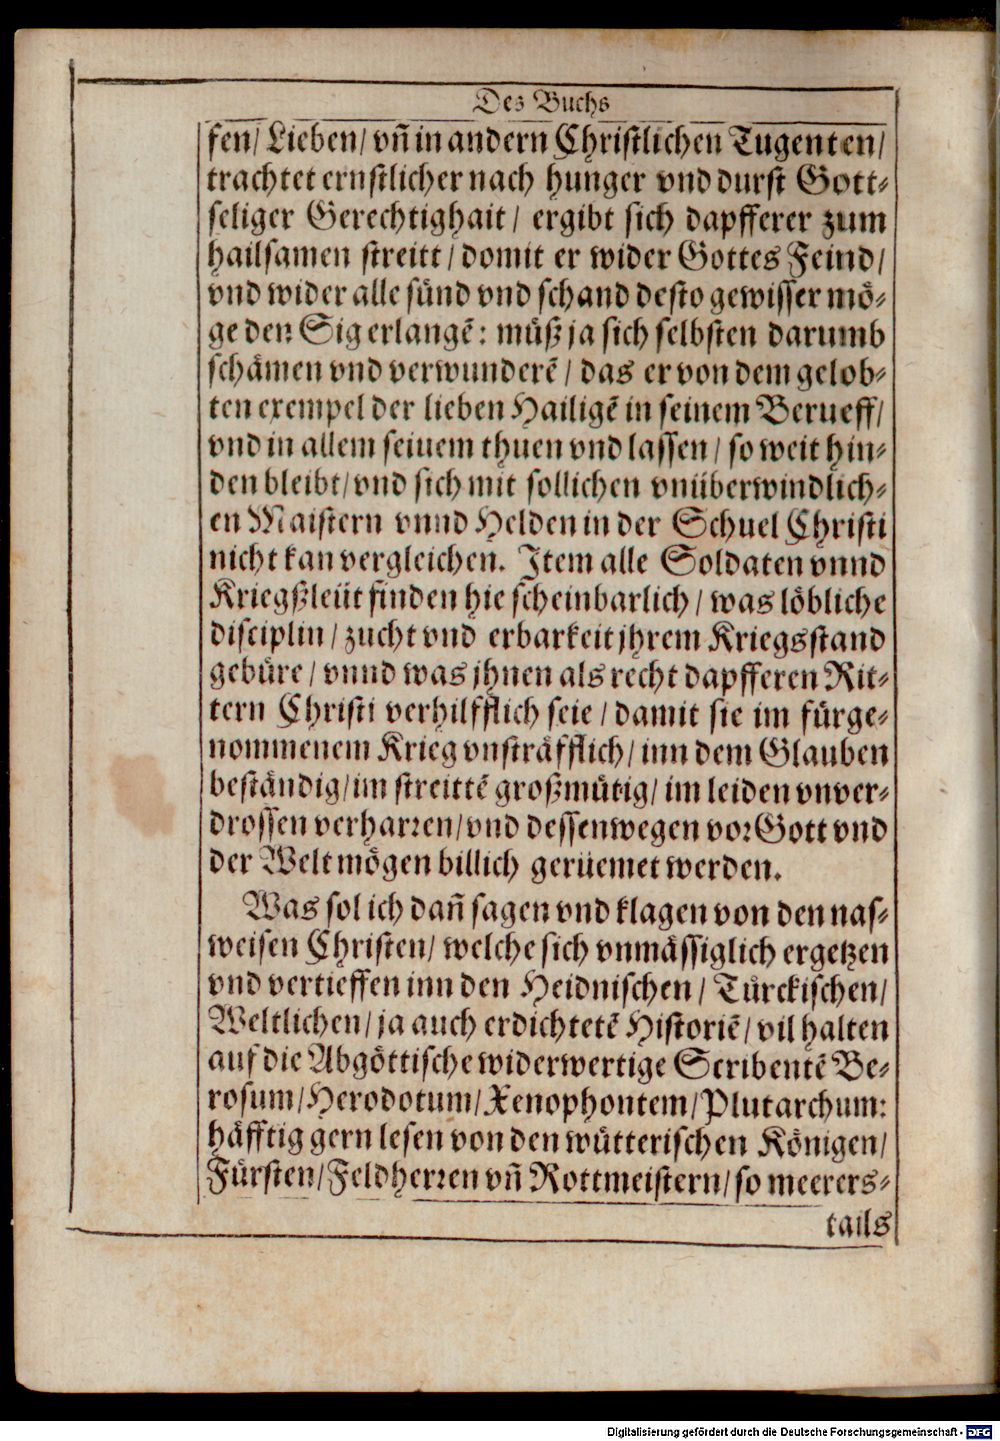 Des Buchs
fen/ Lieben/ vñ in andern Christlichen Tugenten/
trachtet ernstlicher nach hunger vnd durst Gott-
seliger Gerechtighait/ ergibt sich dapfferer zum
hailsamen streitt/ domit er wider Gottes Feind/
vnd wider alle sünd vnd schand desto gewisser mö-
ge den Sig erlangẽ: müß ja sich selbsten darumb
schämen vnd verwunderẽ/ das er von dem gelob-
ten exempel der lieben Hailigẽ in seinem Berueff/
vnd in allem seinem thuen vnd lassen/ so weit hin-
den bleibt/ vnd sich mit sollichen vnüberwindlich-
en Maistern vnnd Helden in der Schuel Christi
nicht kan vergleichen. Item alle Soldaten vnnd
Kriegßleüt finden hie scheinbarlich/ was löbliche
disciplin/ zucht vnd erbarkeit jhrem Kriegsstand
gebüre/ vnnd was jhnen als recht dapfferen Rit-
tern Christi verhilfflich seie/ damit sie im fürge-
nommenem Krieg vnsträfflich/ inn dem Glauben
beständig/ im streittẽ großmütig/ im leiden vnver-
drossen verharren/ vnd dessenwegen vor Gott vnd
der Welt mögen billich gerüemet werden.
Was sol ich dañ sagen vnd klagen von den nas-
weisen Christen/ welche sich vnmässiglich ergetzen
vnd vertieffen inn den Heidnischen/ Türckischen/
Weltlichen/ ja auch erdichtetẽ Historiẽ/ vil halten
auf die Abgöttische widerwertige Scribentẽ Be-
rosum/ Herodotum/ Xenophontem/ Plutarchum:
häfftig gern lesen von den wütterischen Königen/
Fürsten/ Feldherren vñ Rottmeistern/ so meerers-
tails
Digitalisierung gefördert durch die Deutsche Forschungsgemeinschaft - DFG